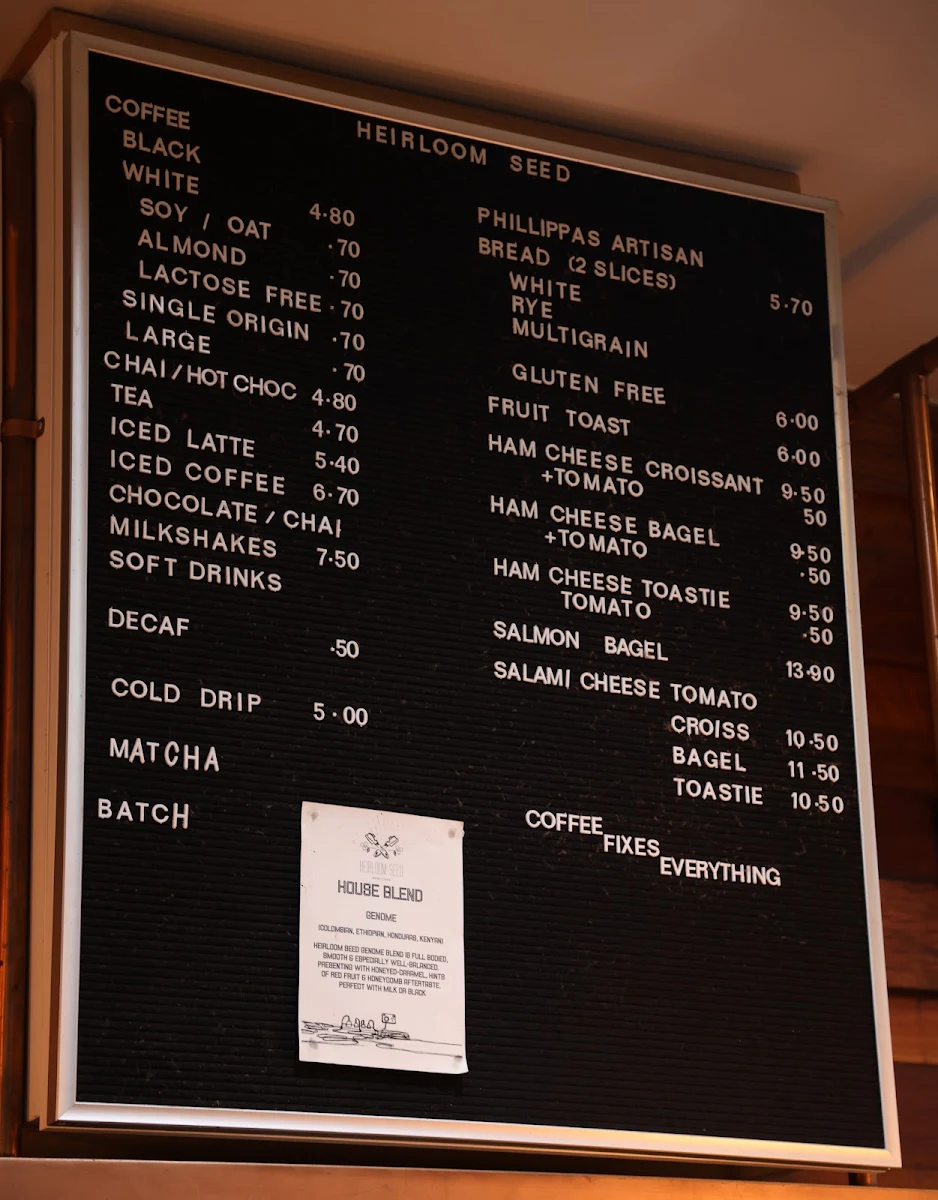 HEIRLOOM SEED
COFFEE
BLACK
WHITE 4.80
SOY / OAT .70
ALMOND .70
LACTOSE FREE .70
SINGLE ORIGIN .70
LARGE .70
CHAI/HOT CHOC 4.80
TEA 4.70
ICED LATTE 5.40
ICED COFFEE 6.70
CHOCOLATE / CHAI
MILKSHAKES 7.50
SOFT DRINKS
DECAF .50
COLD DRIP 5.00
MATCHA
BATCH
PHILLIPPAS ARTISAN
BREAD (2 SLICES) 5.70
WHITE
RYE
MULTIGRAIN
GLUTEN FREE 6.00
FRUIT TOAST 6.00
HAM CHEESE CROISSANT 9.50
+TOMATO 50
HAM CHEESE BAGEL 9.50
+TOMATO .50
HAM CHEESE TOASTIE 9.50
TOMATO .50
SALMON BAGEL 13.90
SALAMI CHEESE TOMATO
CROISS 10.50
BAGEL 11.50
TOASTIE 10.50
COFFEE
FIXES
EVERYTHING
HEIRLOOM SEED
HOUSE BLEND
GENOME
(COLOMBIAN, ETHIOPIAN, HONDURAS, KENYAN)
HEIRLOOM SEED GENOME BLEND IS FULL BODIED,
SMOOTH & ESPECIALLY WELL-BALANCED.
PRESENTING WITH HONEYED-CARAMEL, HINTS
OF RED FRUIT & HONEYCOMB AFTERTASTE.
PERFECT WITH MILK OR BLACK